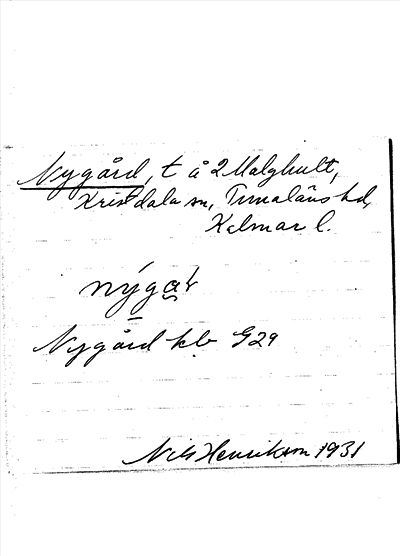 Nygård, t å 2 Malghult,
Kristdala sn, Tunaläns hd,
Kalmar l.
nýgaṛ
Nygård kb G29
Nils Henrikson 1931